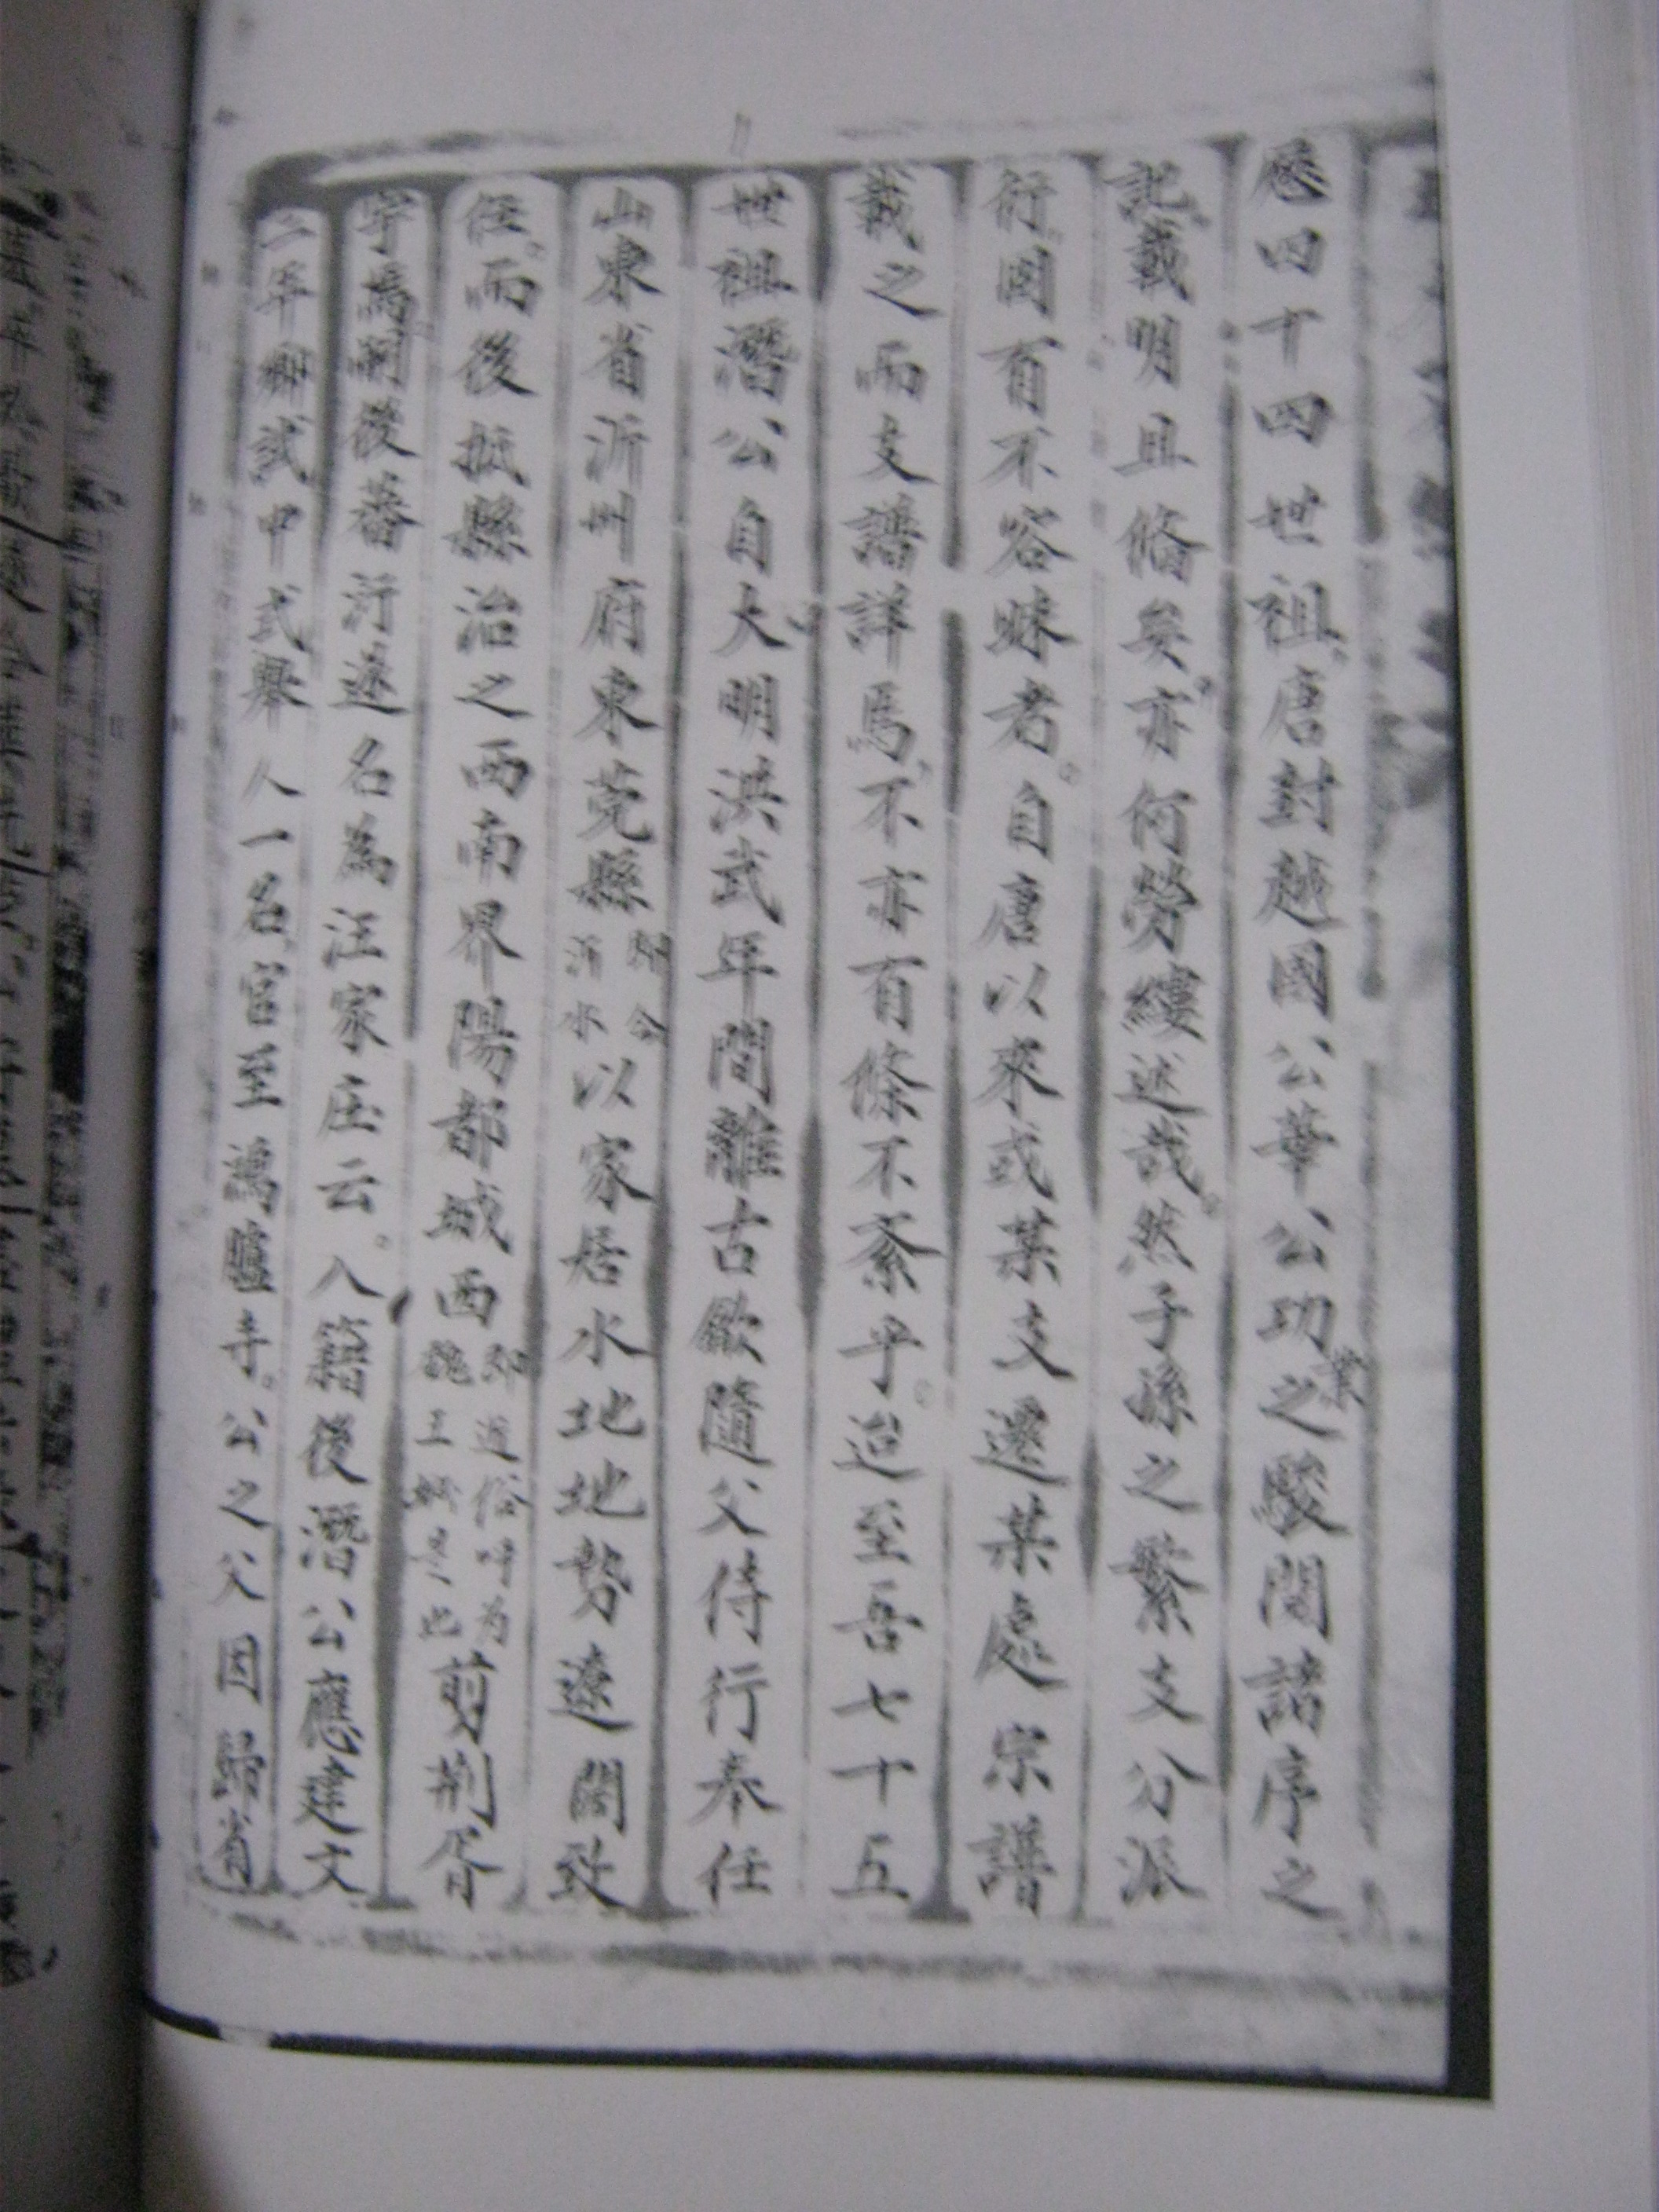 歷四十四世祖唐封越國公華公功業之駿閱諸序之
記載明且偹矣亦何勞縷述哉然子孫之繁支分派
衍國有不容昧者自唐以來或某支遷某處宗譜
載之而支譜詳焉不亦有條不紊乎迨至吾七十五
世祖潛公自大明洪武年間離古歙隨父侍行奉任
山東省沂州府東莞縣即今沂水以家居水地地勢遼闊致
任而後抵縣治之西南界陽都城西即道俗呼为魏王城是也剪荆胥
宇焉嗣後蕃衍遂名為汪家庄云入籍後潛公應建文
二年鄉試中式舉人一名官至鴻臚寺公之父因歸省